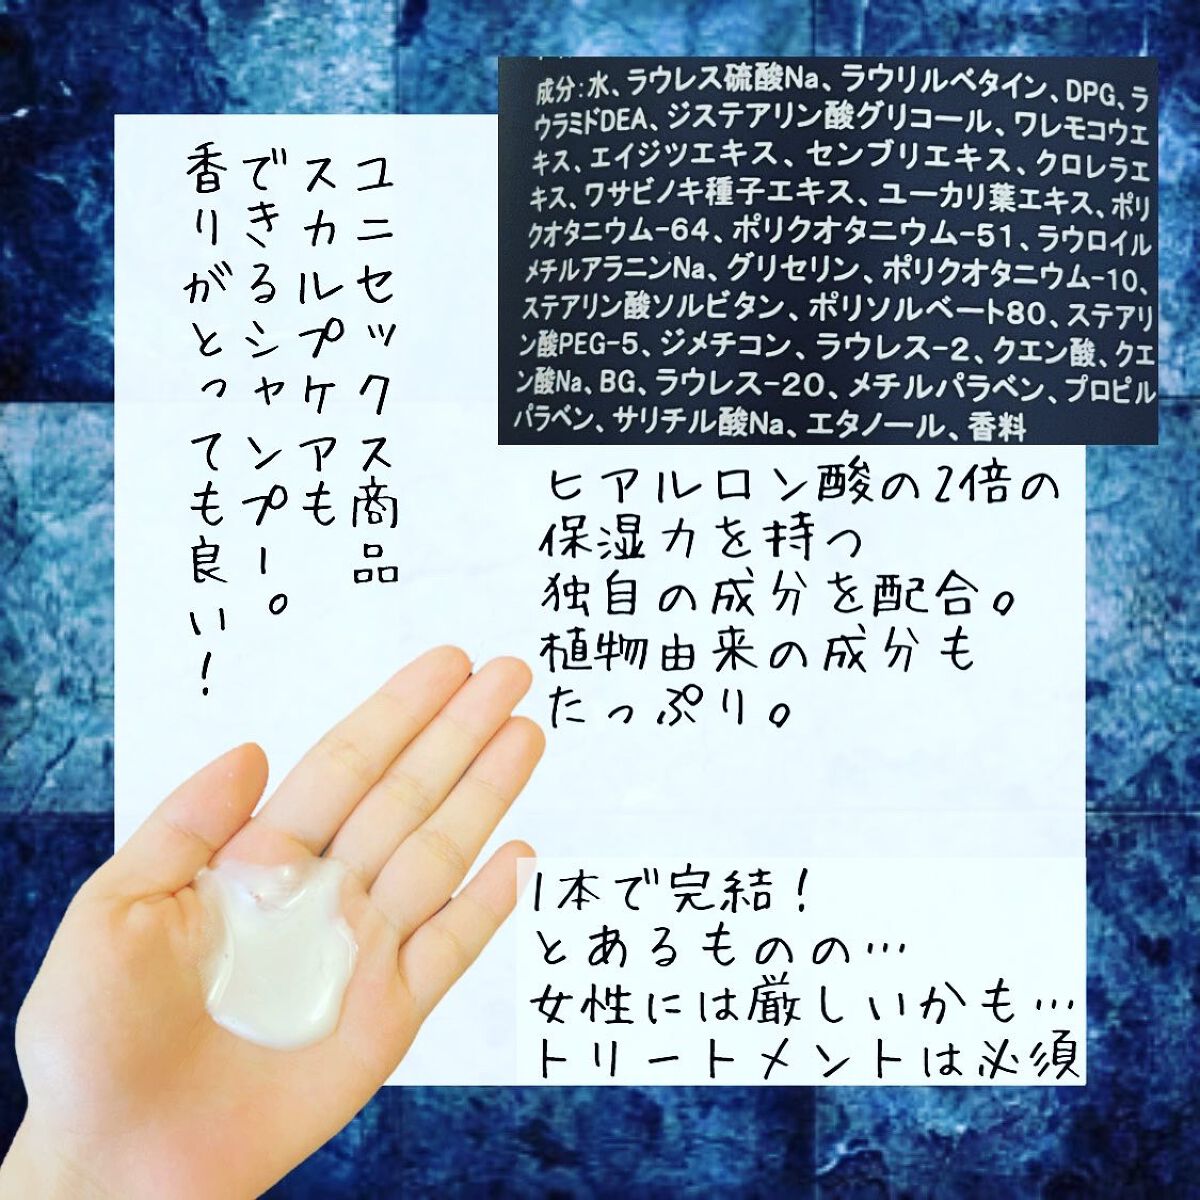 ユニセックス商品
スカルプケアも
できるシャンプー。
香りがとっても良い!
成分:水、ラウレス硫酸Na、ラウリルベタイン、DPG、ラ
ウラミドDEA、ジステアリン酸グリコール、ワレモコウエ
キス、エイジツエキス、センブリエキス、クロレラエ
キス、ワサビノキ種子エキス、ユーカリ葉エキス、ポリ
クオタニウム-64、ポリクオタニウム-51、ラウロイル
メチルアラニンNa、グリセリン、ポリクオタニウム-10、
ステアリン酸ソルビタン、ポリソルベート80、ステアリ
ン酸PEG-5、ジメチコン、ラウレス-2、クエン酸、クエ
ン酸Na、BG、ラウレス-20、メチルパラベン、プロピル
パラベン、サリチル酸Na、エタノール、香料
ヒアルロン酸の2倍の
保湿力を持つ
独自の成分を配合。
植物由来の成分も
たっぷり。
1本で完結!
とあるものの…
女性には厳しいかも…
トリートメントは必須